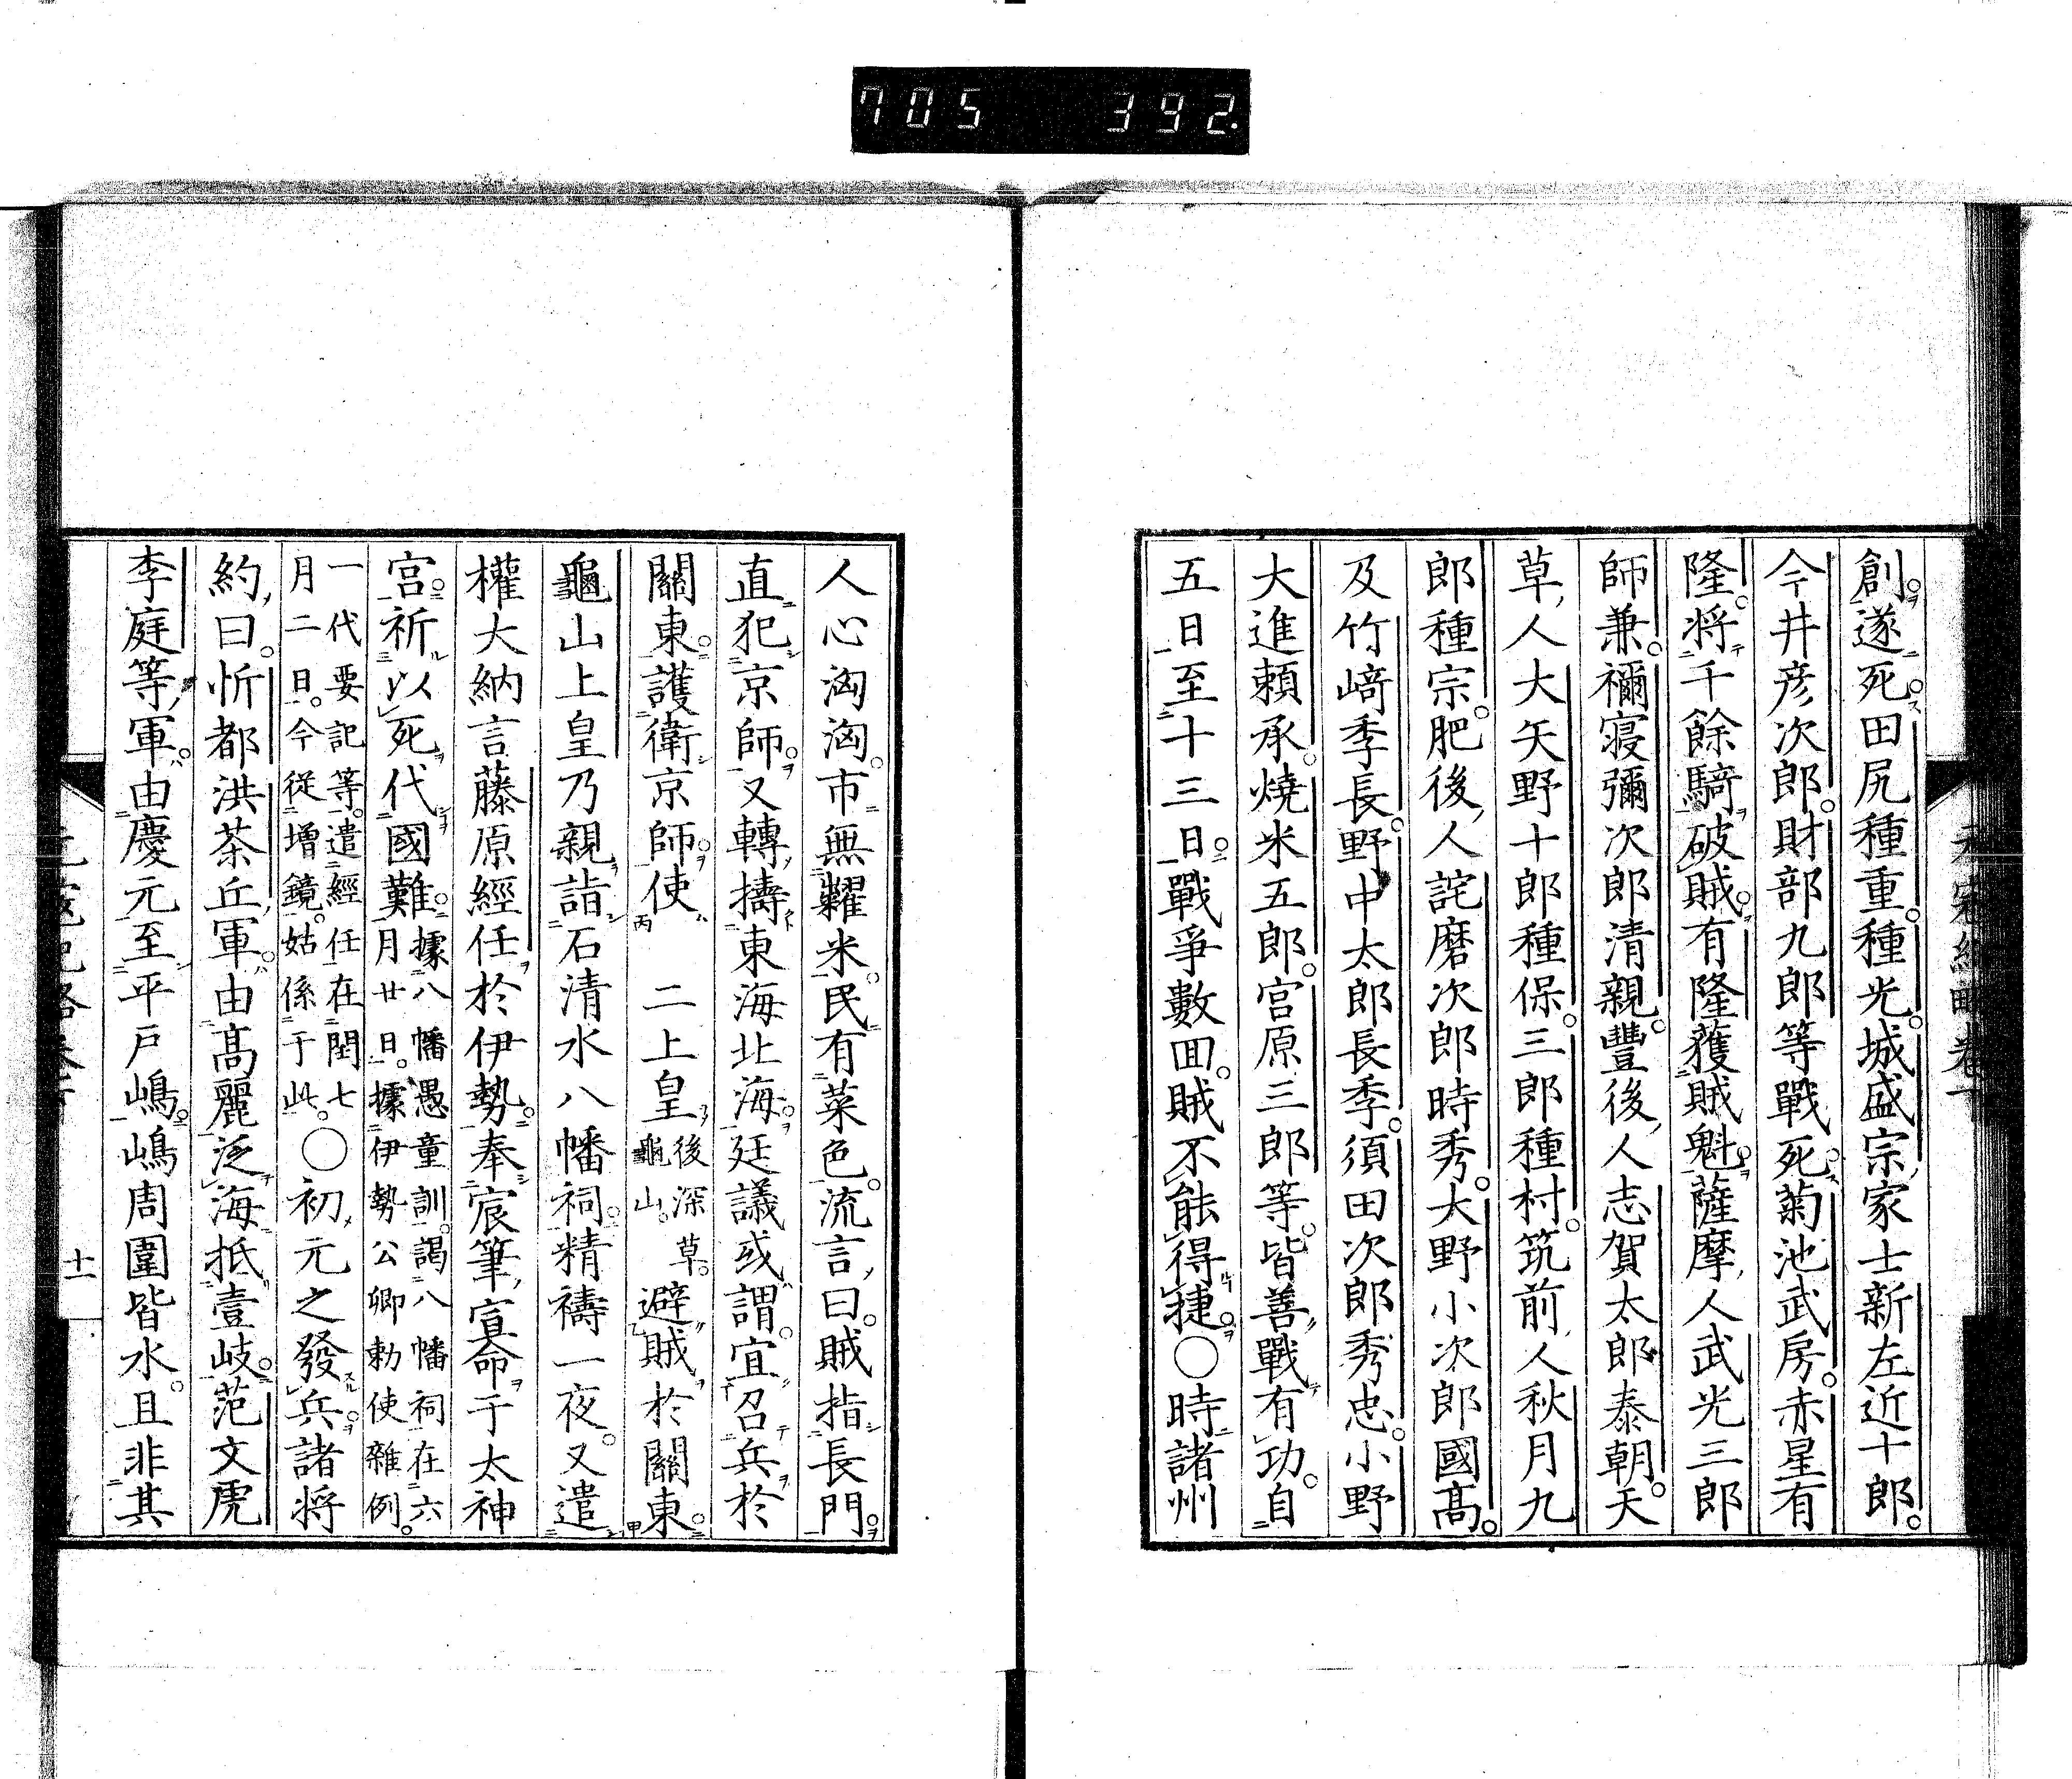 705 392.
創遂死田尻種重種光城盛宗家士新左近十郎
今井彦次郎財部九郎等戰死菊池武房赤星有
隆將千餘騎破賊有隆獲賊魁薩摩人武光三郎
師兼禰寝彌次郎清親豐後人志賀太郎泰朝天
草人大矢野十郎種保三郎種村筑前人秋月九
郎種宗肥後人詫磨次郎時秀大野小次郎國高
及竹﨑季長野中太郎長季須田次郎秀忠小野
大進頼承燒米五郎宮原三郎等皆善戰有功自
五日至十三日戰爭數囬賊不能得捷〇時諸州
人心洶洶市無糶米民有菜色流言曰賊指長門
直犯京師又轉擣東海北海廷議或謂宜召兵於
關東護衛京師使 二上皇後深草龜山避賊於關東
龜山上皇乃親詣石清水八幡祠精禱一夜又遣
權大納言藤原經任於伊勢奉宸筆寘命于太神
宮祈以死代國難據八幡愚童訓謁八幡祠在六月廿日據伊勢公卿勅使雜例
一代要記等遣經任在閏七月二日今從增鏡姑係于此〇初元之發兵諸將
約曰忻都洪茶丘軍由高麗泛海抵壹岐范文虎
李庭等軍由慶元至平戸嶋嶋周圍皆水且非其
十一